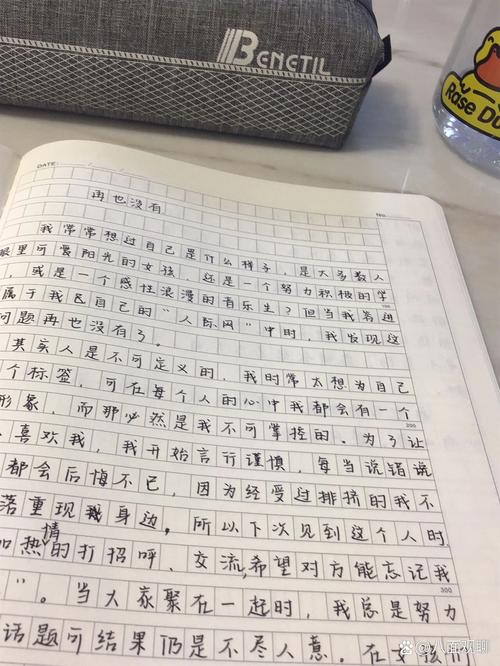 BENETIL
Rase Du
DATE:
No.
再也没有
我常常想过自己是什么样子，是大多数人
眼里可爱阳光的女孩，还是一个努力积极的学
，或是一个感性浪漫的音乐生？但当我奔进
属于我自己的“人际网”中时，我发现这
问题再也没有了。
100
其实人是不可定义的，我时常太想为自己
个标签，可在每个人的心中我都会有一个
形象，而那必然是我不可掌控的。为了让
200
喜欢我，我开始言行谨慎，每当说错说
都会后悔不已，因为经受过排挤的我不
落重现我身边。所以下次见到这个人时
加热情的打招呼，交流，希望对方能忘记我
300
”。当大家聚在一起时，我总是努力
话题可结果仍是不尽人意。在
八面观聊